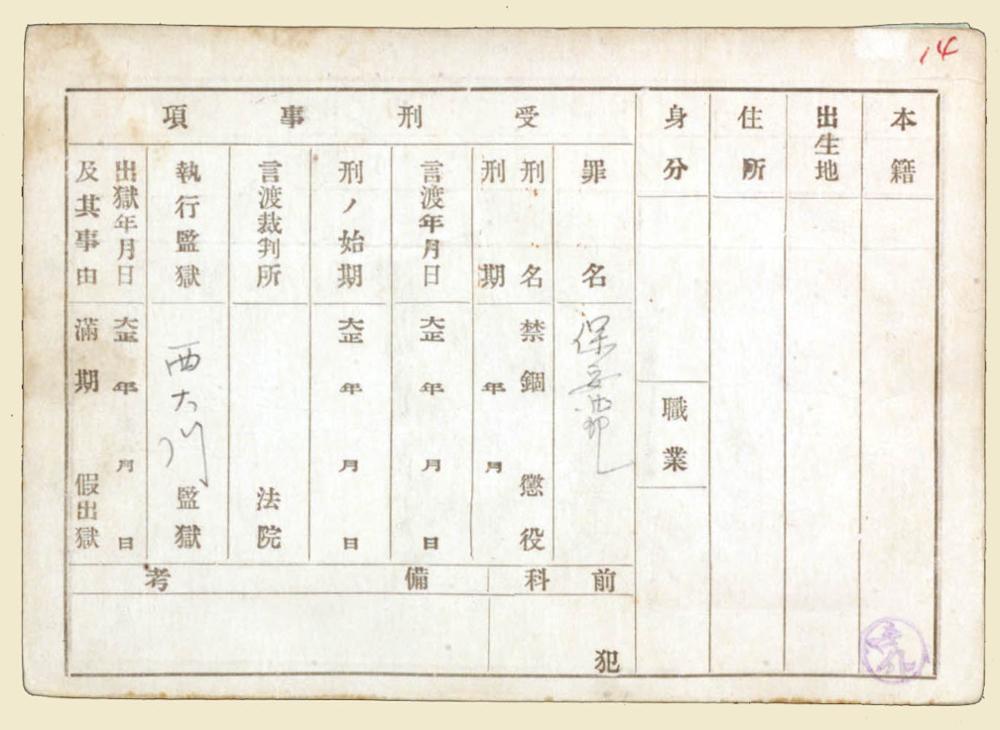 14
本籍
出生地
住所
身分
職業
受刑事項
罪名
保安法
刑名
禁錮 懲役
刑期
年 月
言渡年月日
大正 年 月 日
刑ノ始期
大正 年 月 日
言渡裁判所
法院
執行監獄
西大門監獄
出獄年月日
大正 年 月 日
及其事由
滿期 假出獄
前科
犯
備考